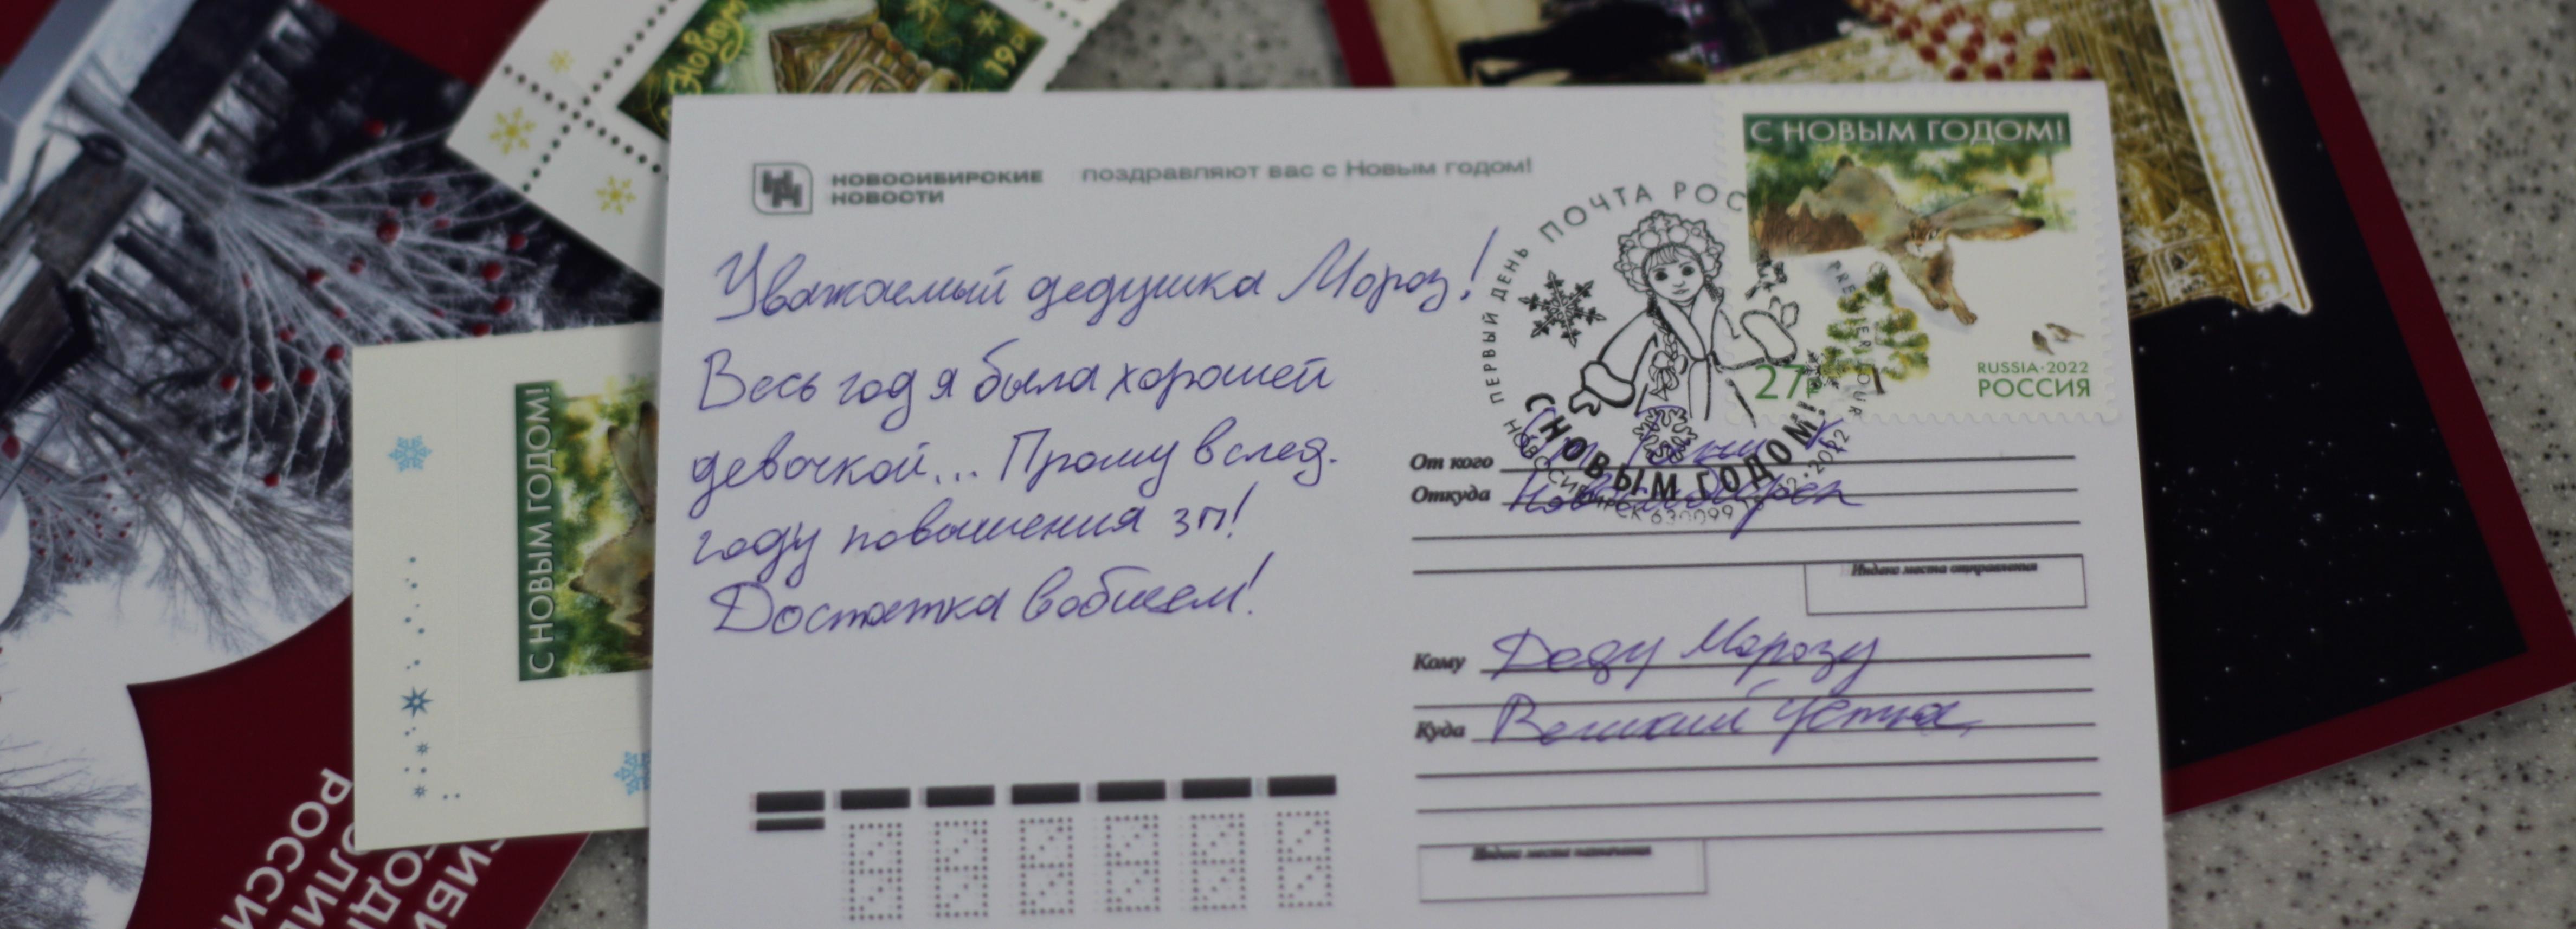 Новом
19р
НОВОСИБИРСКИЕ
НОВОСТИ
поздравляют вас с Новым годом!
Уважаемый дедушка Мороз!
Весь год я была хорошей
девочкой... Прошу в след.
году повышения зп!
Достатка вобщем!
С НОВЫМ ГОДОМ!
27
RUSSIA·2022
РОССИЯ
ПЕРВЫЙ ДЕНЬ ПОЧТА РОС
С НОВЫМ ГОДОМ!
НОВОСИБИРСК 630099
От кого
Откуда Новосибирск
Индекс места отправления
Кому Деду Морозу
Куда Великий Устюг
Индекс места назначения
С НОВЫМ ГОДОМ!